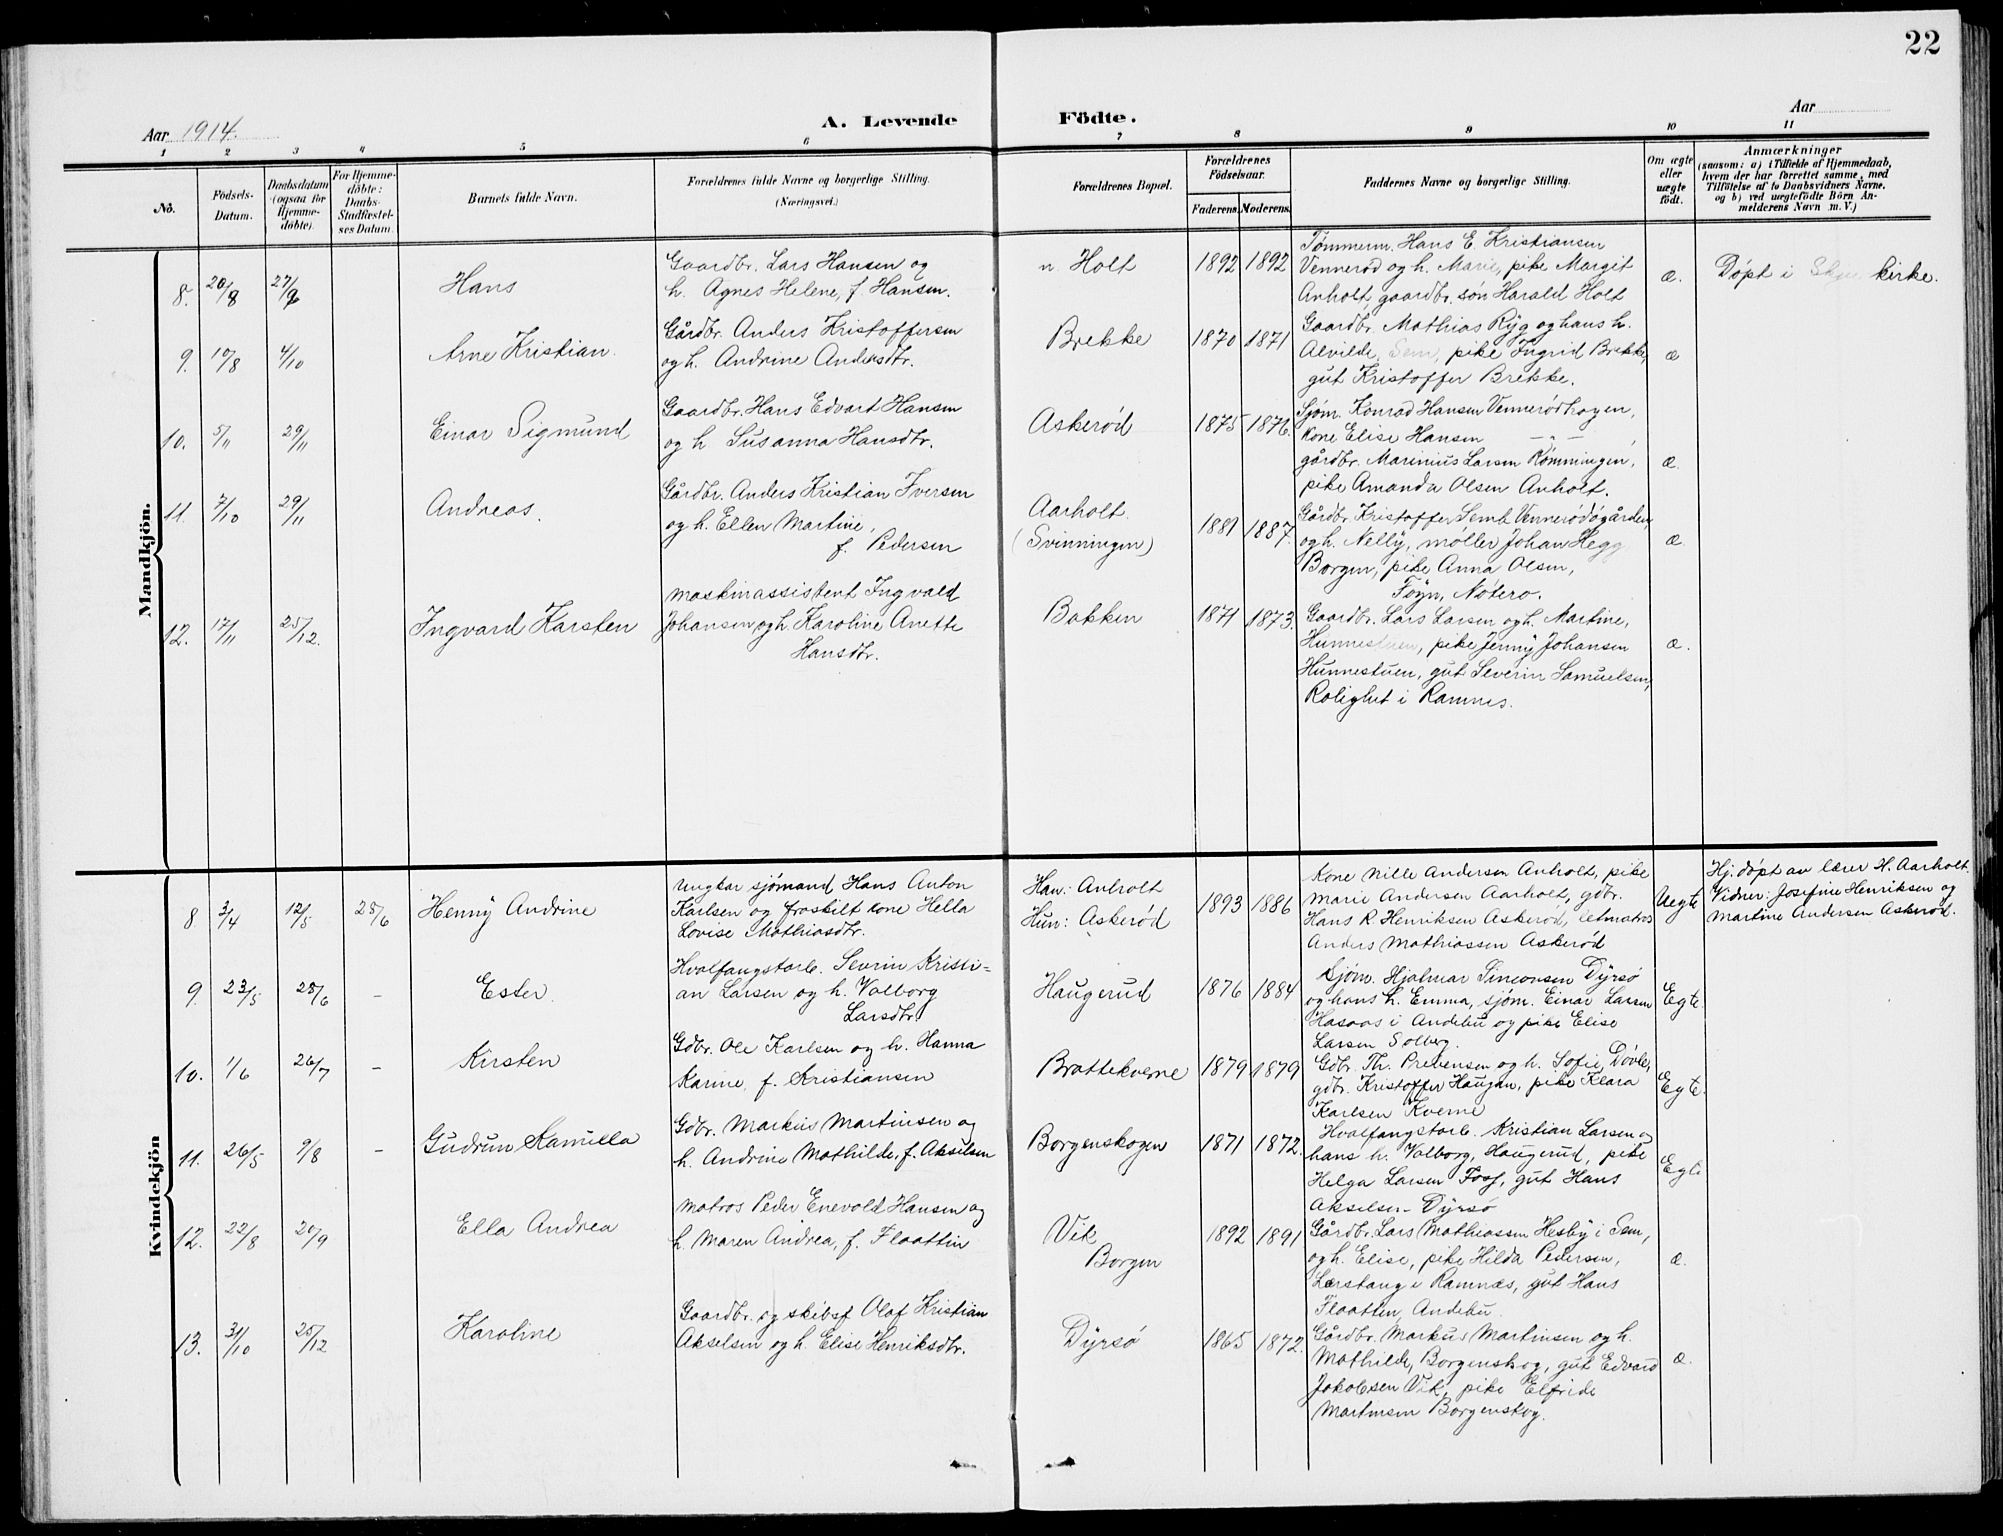 22
Aar 1914.
A. Levende
Födte.
Aar
1 2 3 4 5 6 7 8 9 10 11
No.
Födsels-
Datum.
Daabsdatum
(ogsaa för
Hjemme-
döbte).
For Hjemme-
döbte:
Daabs-
Stadfæstel-
ses Datum.
Barnets fulde Navn.
Forældrenes fulde Navne og borgerlige Stilling.
(Næringsvei.)
Forældrenes Bopæl.
Forældrenes
Födselsaar.
Faderens. Moderens.
Faddernes Navne og borgerlige Stilling.
Om ægte
eller
uægte
födt.
Anmærkninger
(saasom: a) i Tilfælde af Hjemmedaab,
hvem der har forrettet samme, med
Tilföielse af to Daabsvidners Navne,
og b) ved uægtefödte Börn An-
melderens Navn m. V.)
Mandkjön.
8. 20/8 27/9
Hans
Gaardbr. Lars Hansen og
h. Agnes Helene, f. Hansen.
n. Holt
1892 1892
Tømmerm. Hans E. Kristiansen
Vennerød og h. Marie, pike Margit
Anholt, gaardbr. søn Harald Holt
æ.
Døpt i kirke.
9. 10/8 4/10
Arne Kristian.
Gårdbr. Anders Kristoffersen
og h. Andrine Andersdtr.
Brekke
1870 1871
Gaardbr. Mathias Ryg og hans h.
Alvilde, Sem, pike Ingrid Brekke,
gut Kristoffer Brekke.
æ
10. 5/11 29/11
Einar Sigmund
Gaardbr. Hans Edvart Hansen
og h Susanna Hansdtr.
Askerød
1875 1876.
Sjøm. Konrad Hansen Vennerødhagen,
kone Elise Hansen — " — ,
gårdbr. Marinius Larsen Rømningen,
pike Amanda Olsen Anholt.
æ.
11. 7/10 29/11
Andreas.
Gårdbr. Anders Kristian Iversen
og h. Ellen Martine,
f. Pedersen
Aarholt.
(Svinningen)
1881 1887.
Gårdbr. Kristoffer Semb Vennerødøgården
og h. Nelly, møller Johan Hegg
Borgen, pike Anna Olsen,
Føyn, Nøtero.
æ.
12. 17/11 25/12.
Ingvard Karsten
Maskinassistent Ingvald
Johansen og h. Karoline Anette
Hansdtr.
Bakken
1871 1873.
Gaardbr. Lars Larsen og h. Martine,
Hunnestuen, pike Jenny Johansen
Hunnestuen, gut Severin Samuelsen,
Rolighet i Ramnes.
æ.
Kvindekjön
8. 3/4 12/5 25/6
Henny Andrine
Ungkar sjømand Hans Anton
Karlsen og fraskilt kone Hella
Lovise Mathiasdtr.
Han: Anholt
Hun: Askerød
1893 1886
Kone Nille Andersen Anholt, pike
Marie Andersen Aarholt, gdbr.
Hans R. Henriksen Askerød, letmatros
Anders Mathiassen Askerød
Uegte
Hj. døpt av lærer H. Aarholt.
Vidner: Josefine Henriksen og
Martine Andersen Askerød.
9. 23/5 25/6 –
Ester.
Hvalfangstarb. Sevrin Kristi=
an Larsen og h. Valborg
Larsdtr.
Haugerud
1876 1884
Sjøm. Hjalmar Simonsen Dyrsø
og hans h. Emma, sjøm. Einar Larsen
Hasaas i Andebu og pike Elise
Larsen Solberg.
Egte
10. 1/6 26/7 –
Kirsten
Gdbr. Ole Karlsen og h. Hanna
Karine, f. Kristiansen
Brattekverne
1879 1879
Gdbr. Th. Prebensen og h. Sofie, Døvle,
gdbr. Kristoffer Haugan, pike Klara
Karlsen Kverne
Ægte.
11. 26/5 9/8 –
Gudrun Kamilla
Gdbr. Markus Martinsen og
h. Andrine Mathilde, f. Akselsen
Borgenskogen
1871 1872.
Hvalfangstarb. Kristian Larsen og
hans h. Valborg, Haugerud, pike
Helga Larsen Foss, gut Hans
Akselsen Dyrsø
Ægte
12. 22/8 20/9
Ella Andrea
Matros Peder Enevold Hansen og
h. Maren Andrea, f. Flaattin
Vik
Borgen
1892 1891
Gårdbr. Lars Mathiassen Hesby i Sem,
og h. Elise, pike Hilda Pedersen,
Lærstang i Ramnæs, gut Hans
Flaatten, Andebu.
æ.
13. 31/10 25/12
Karoline
Gaardbr. og skibsf. Olaf Kristian
Akselsen og h. Elise Henriksdtr.
Dyrsø
1865 1872.
Gårdbr. Markus Martinsen og h.
Mathilde, Borgenskog, gut Edvard
Jakobsen Vik, pike Elfride
Martinsen Borgenskog.
æ.